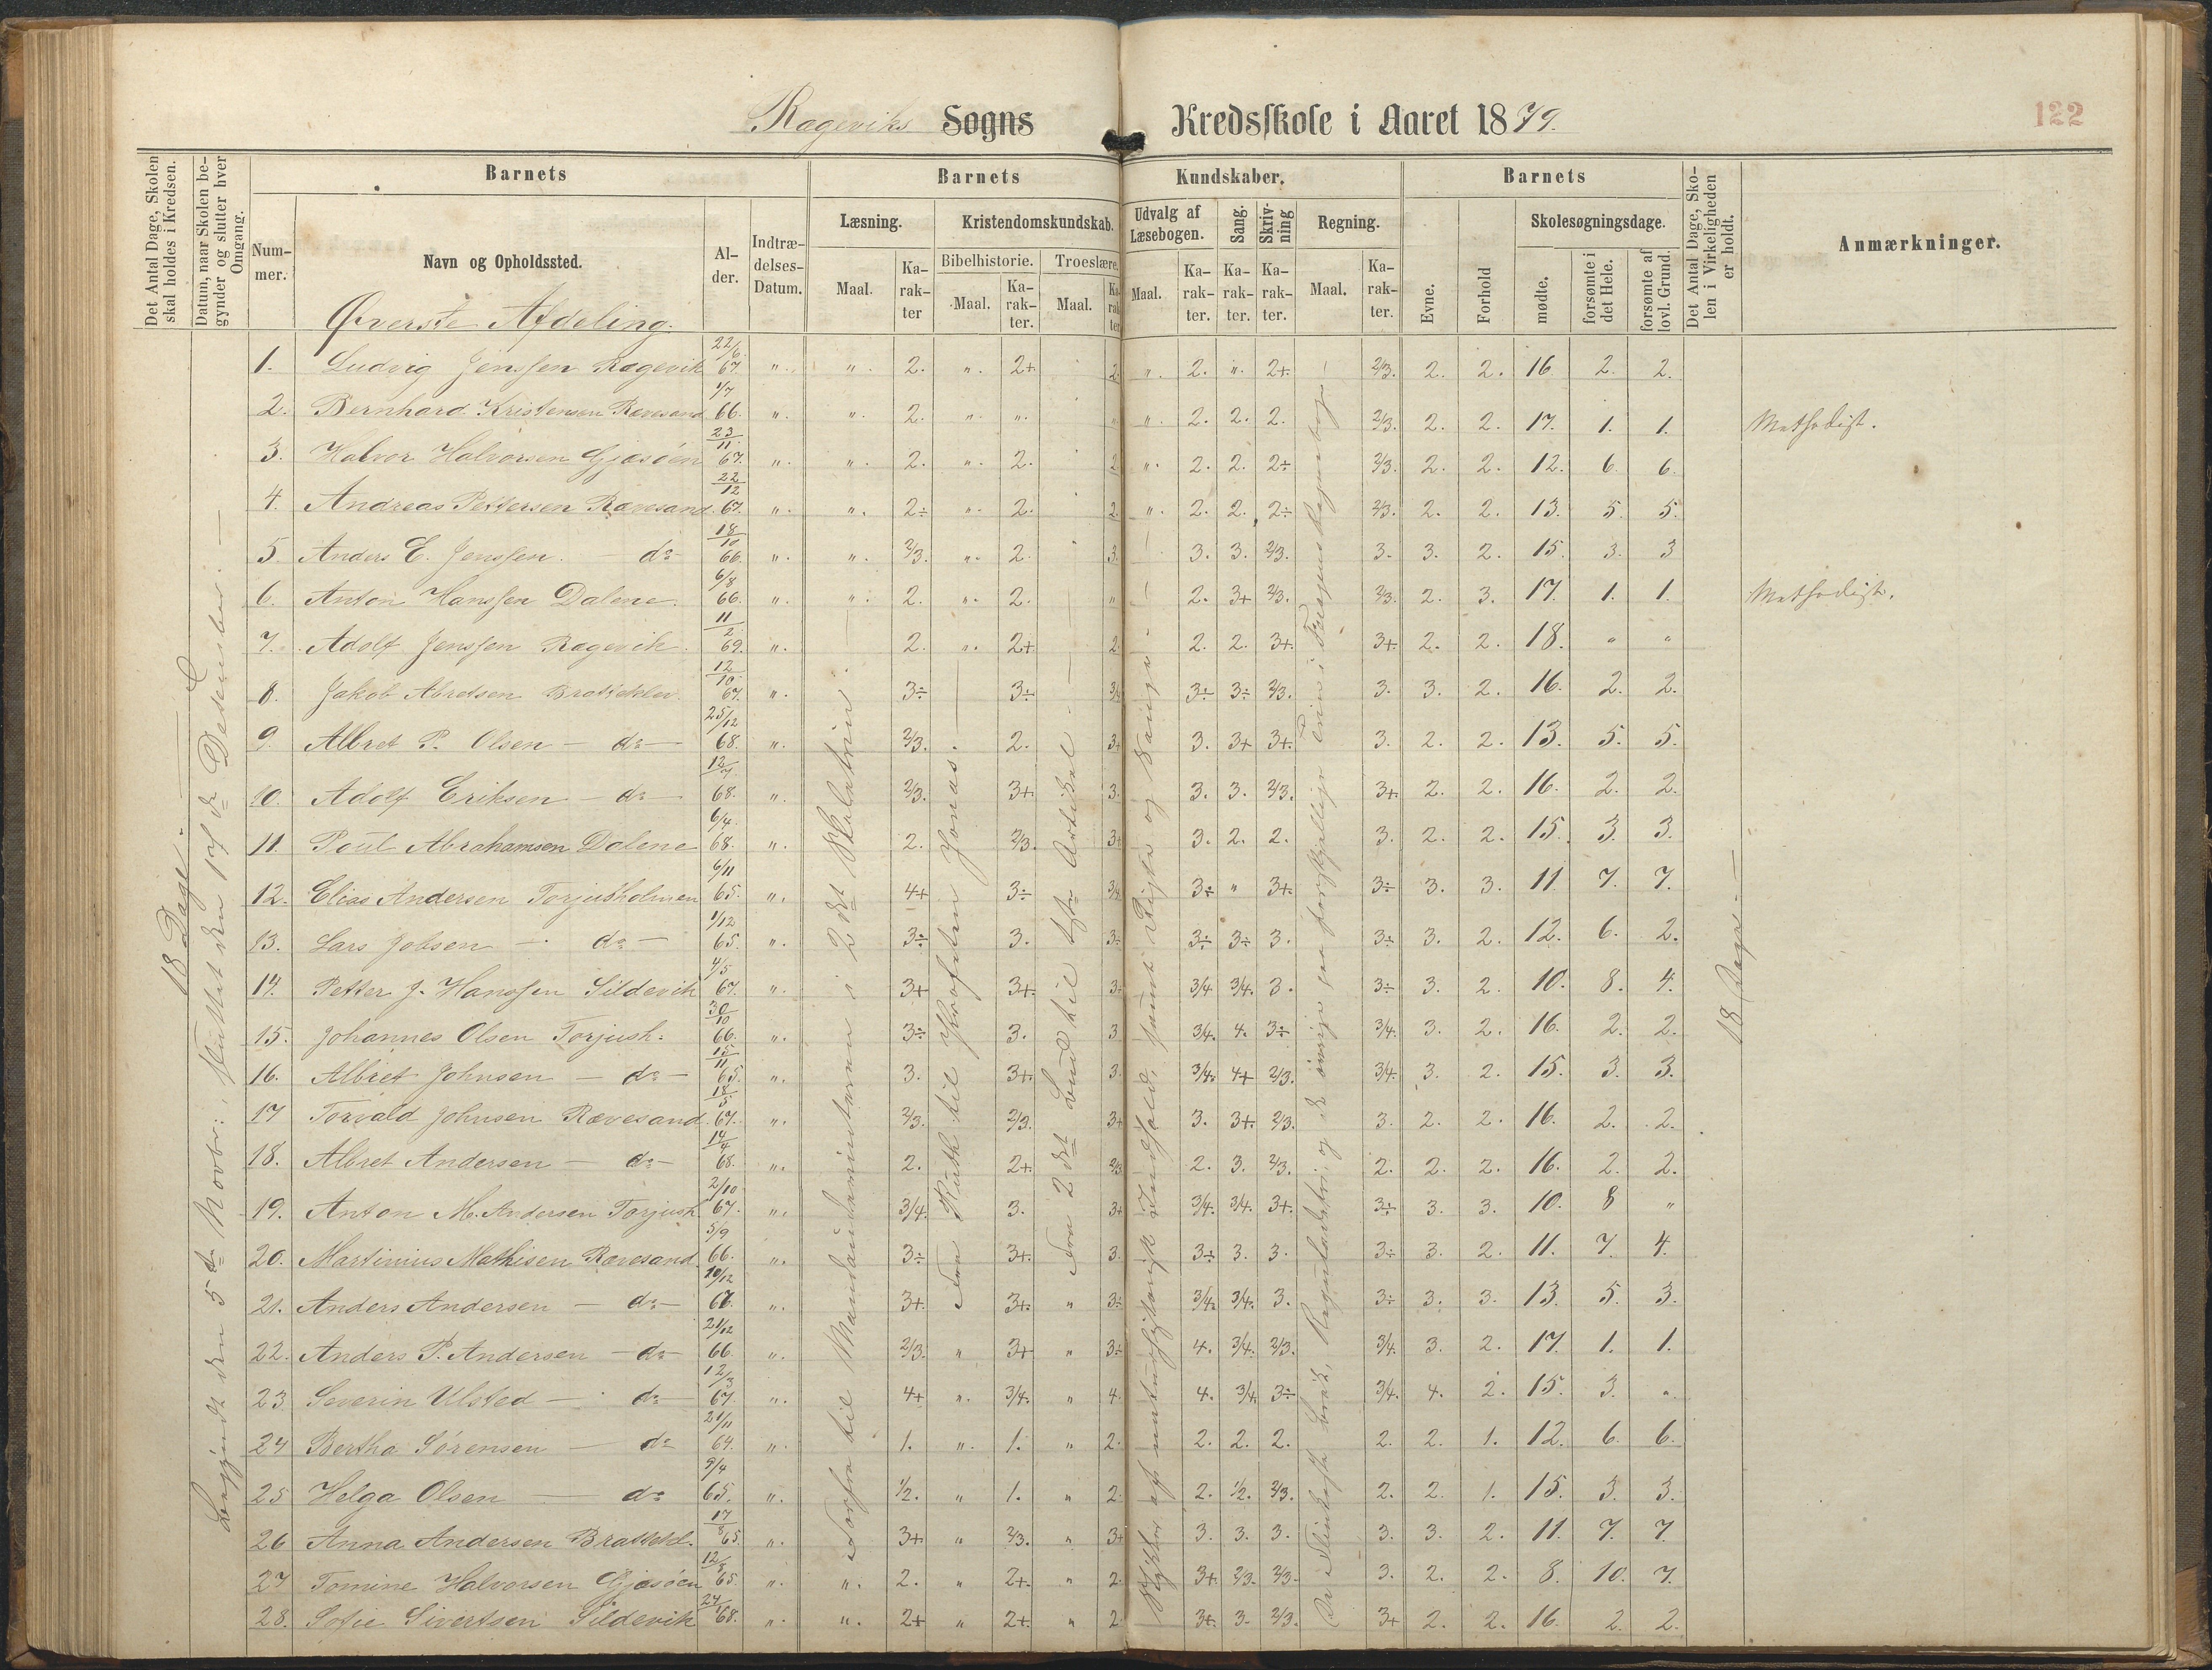 Rageviks Sogns Kredsskole i Aaret 1879.
122
Det Antal Dage, Skolen skal holdes i Kredsen.
Datum, naar Skolen begynder og slutter hver Omgang.
Barnets
Barnets
Kundskaber.
Barnets
Det Antal Dage, Skolen i Virkeligheden er holdt.
Anmærkninger.
Nummer.
Navn og Opholdssted.
Alder.
Indtrædelses-Datum.
Læsning.
Kristendomskundskab.
Udvalg af Læsebogen.
Sang.
Skrivning
Regning.
Evne.
Forhold
Skolesøgningsdage.
Maal.
Karakter
Bibelhistorie.
Troeslære.
Maal.
Karakter.
Maal.
Karakter
Maal.
Karakter.
Karakter.
Karakter.
Maal.
Karakter.
mødte.
forsømte i det Hele.
forsømte af lovl. Grund.
Øverste Afdeling.
1. Ludvig Jenssen Ragevik 22/6 67. ". ". 2. ". 2+ 2 ". 2. ". 2+. 2/3. 2. 2. 16 2. 2.
2. Bernhard Kristensen Rævesand 1/7 66. ". ". 2. ". ". " ". 2. 2. 2. 2/3. 2. 2. 17. 1. 1. Methodist.
3. Halvor Halvorsen Gjæsöen 23/11 67. ". ". 2. ". 2. 2 ". 2. 2. 2÷ 2/3. 2. 2. 12. 6. 6.
4. Andreas Pettersen Rævesand. 22/12 67. ". ". 2÷ ". 2. 2. ". 2. 2. 2÷ 2/3. 2. 2. 13. 5. 5.
5 Anders E. Jenssen. — do 18/10 66. ". ". 2/3. ". 2. 3. 3. 3. 2/3. 3. 3. 2. 15. 3. 3
6. Anton Hanssen Dalene. 6/8 66. ". ". 2. ". 2. " 2. 3+ 2/3. 2/3. 2. 3. 17. 1. 1. Methodist.
7. Adolf Jenssen Ragevik. 11/2 69. ". 2. ". 2+ 2. 2. 2. 3+. 3+. 2. 2. 18. " "
8. Jakob Abretsen Bratteklev. 12/10 67. ". 3÷ 3÷ 3/4 3÷ 3÷ 2/3. 3. 3. 2. 16. 2. 2.
9. Albret P. Olsen — do — 25/12 68. ". 2/3. 2. 3+ 3. 3+ 3+. 3. 2. 2. 13. 5. 5.
10. Adolf Eriksen — do — 12/7 68. ". 2/3. 3+. 3. 3. 3. 2/3. 3+. 2. 2. 16. 2. 2.
11. Poul Abrahamsen Dalene 6/4 68. ". 2. 2/3. 3+ 3. 2. 2. 3. 2. 2. 15. 3. 3.
12. Elias Andersen Torjusholmen 6/11 65. ". 4+ 3÷ 3/4 3÷ " 3+. 3÷ 3. 3. 11 7. 7.
13. Lars Jobsen — do — 1/12 65. ". 3÷ 3. 3÷ 3÷ 3÷ 3. 3÷ 3. 2. 12. 6. 2.
14. Petter J. Hanssen Sildevik 4/5 67. ". 3+ 3+. 3÷ 3/4 3/4. 3. 3÷ 3. 2. 10. 8. 4.
15. Johannes Olsen Torjush. 30/10 66. ". 3÷ 3. 3 3/4. 4. 3÷ 3/4. 3. 2. 16. 2. 2.
16. Albret Johnsen — do — 15/11 65. ". 3. 3+. 3. 3/4. 4+ 2/3. 3/4. 3. 2. 15. 3. 3.
17 Torvald Johnsen Rævesand. 18/5 67. ". 2/3. 2/3. 3+ 3. 3+. 2/3. 3. 2. 2. 16. 2. 2.
18. Albret Andersen — do — 14/4 68. ". 2. 2+ 2/3 2. 3. 2/3. 2. 2. 2. 16. 2. 2.
19. Anton M. Andersen Torjush 2/10 67. ". 3/4. 3. 3+ 3/4. 3/4. 3+. 3÷ 3. 3. 10. 8 "
20. Martinius Mathisen Rævesand. 5/9 66. ". 3÷ 3+. 3. 3÷ 3. 3. 3÷ 3. 2. 11. 7. 4.
21. Anders Andersen — do — 10/12 67. ". 3+. 3+. " 3÷ 3/4. 3/4. 3. 3÷ 3. 3. 13. 5. 3.
22. Anders P. Andersen — do 21/12 66. ". 2/3. " 3+ " 3÷ 4. 3/4. 2/3. 3/4. 3. 2. 17. 1. 1.
23 Severin Ulsted — do 12/3 67. ". 4+ ". 3/4. " 4. 4. 3/4 3÷ 3/4. 4. 2. 15. 3. "
24 Bertha Sörensen — do 21/11 64. ". 1. ". 1. " 2. 2. 2. 2. 2. 2. 1. 12. 6. 6.
25 Helga Olsen — do 9/4 65. ". 1/2. " 1. " 2. 2. 1/2. 2/3. 2. 2. 1. 15. 3. 3.
26 Anna Andersen Brattekl. 17/8 65. ". 3+ " 2/3. " 3+ 3. 3. 3. 3. 3. 2. 11. 7. 7
27 Tomine Halvorsen Gjæsöen 12/8 65. ". ". 2. " 2+. " 2. 3+. 2/3. 2/3. 3. 2. 2. 8. 10. 7.
28. Sofie Sivertsen Sildevik 68. ". ". 2+ " 2+. " 2 3+. 3. 2/3. 3+ 2. 2. 16. 2. 2.
18 Dage.
Begyndt den 5te Novbr: sluttet den 17de Desember.
Forfra til Mandauharmintoren i 2det Skoletrin.
Fra Ruth til Profeten Jonas
Fra 2det Bud til 1ste Artikel
18 Dage.